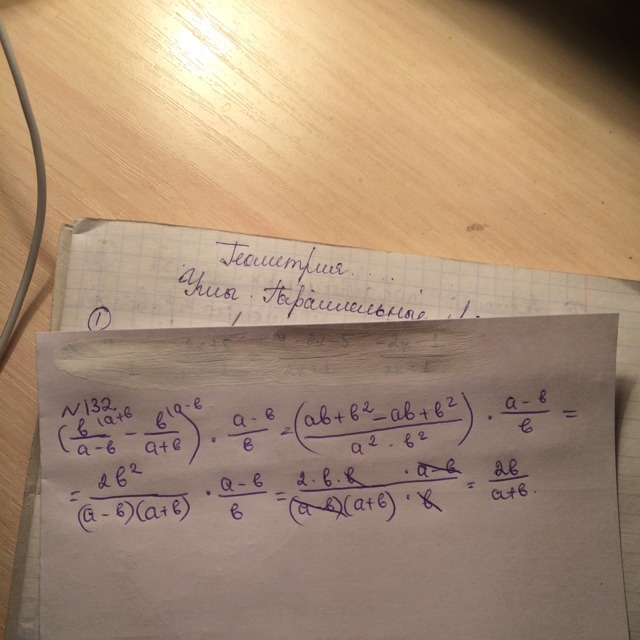 Геометрия....
Углы. Параллельные
1
N132
(b/(a-b) \a+b - b/(a+b) \a-b) · (a-b)/b = ((ab+b²-ab+b²)/(a²-b²)) · (a-b)/b =
= 2b²/((a-b)(a+b)) · (a-b)/b = (2·b·b·(a-b))/((a-b)(a+b)·b) = 2b/(a+b).